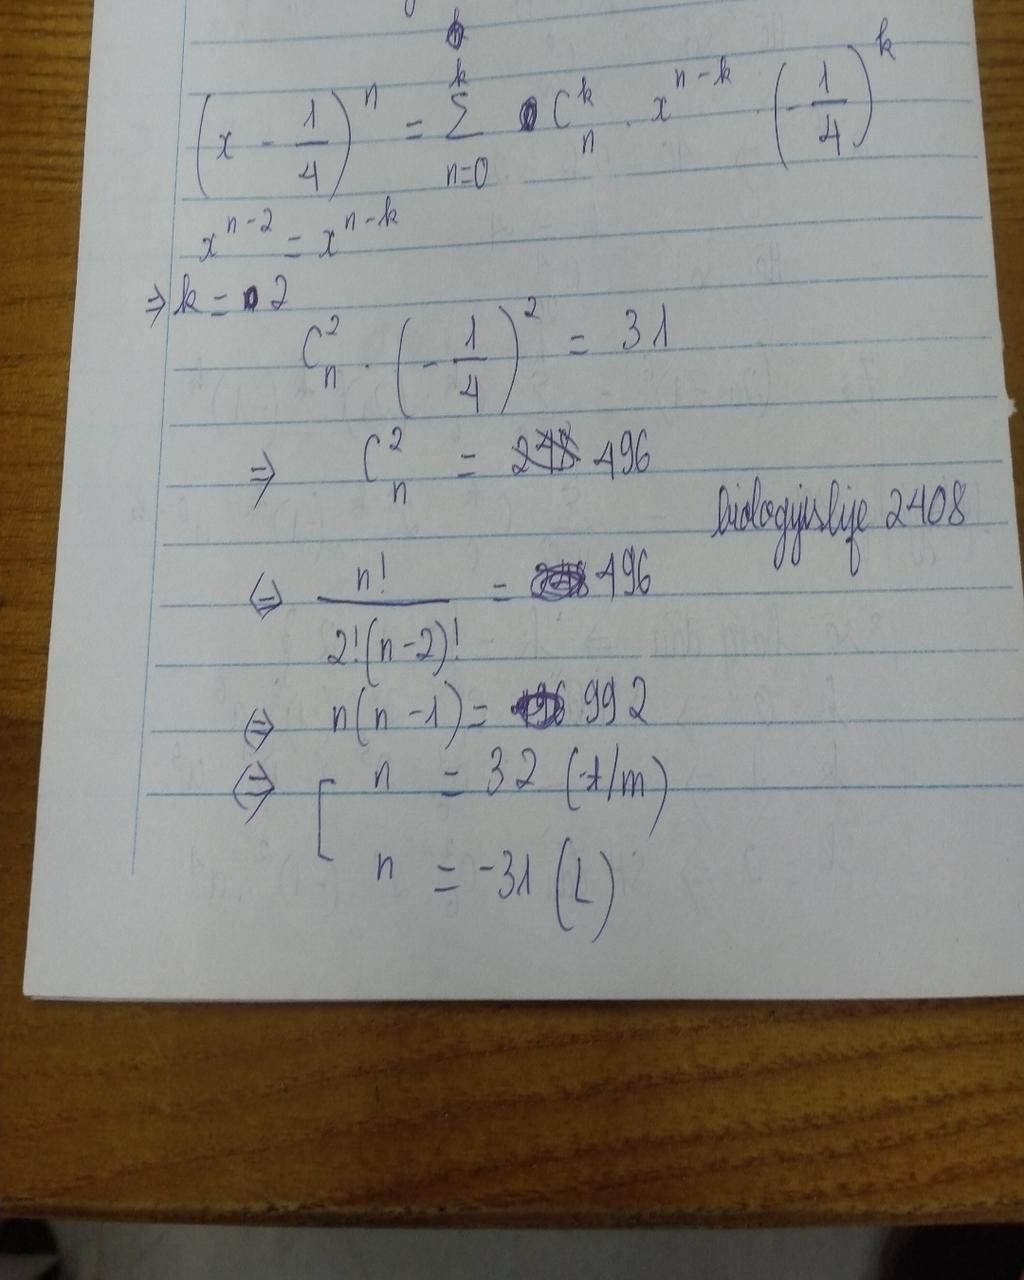 (x - 1/4)^n = Σ_{n=0}^{k} C_n^k . x^{n-k} . (-1/4)^k
x^{n-2} = x^{n-k}
⇒ k = 2
C_n^2 . (-1/4)^2 = 31
⇒ C_n^2 = 496
biologyislife 2408
⇔ n!/2!(n-2)! = 496
⇔ n(n-1) = 992
⇔ [ n = 32 (t/m)
n = -31 (L)